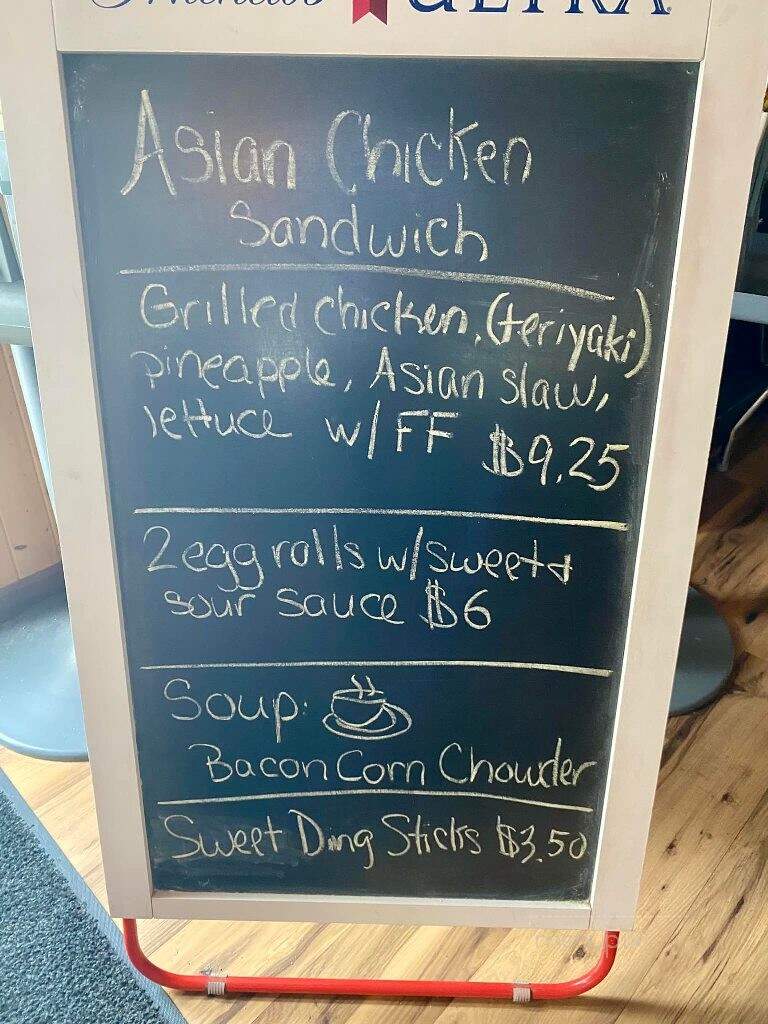 ULTRA
Asian Chicken
Sandwich
Grilled chicken, (teriyaki)
pineapple, Asian slaw,
lettuce w/FF $9.25
2 egg rolls w/sweet &
sour sauce $6
Soup:
Bacon Corn Chowder
Sweet Ding Sticks $3.50